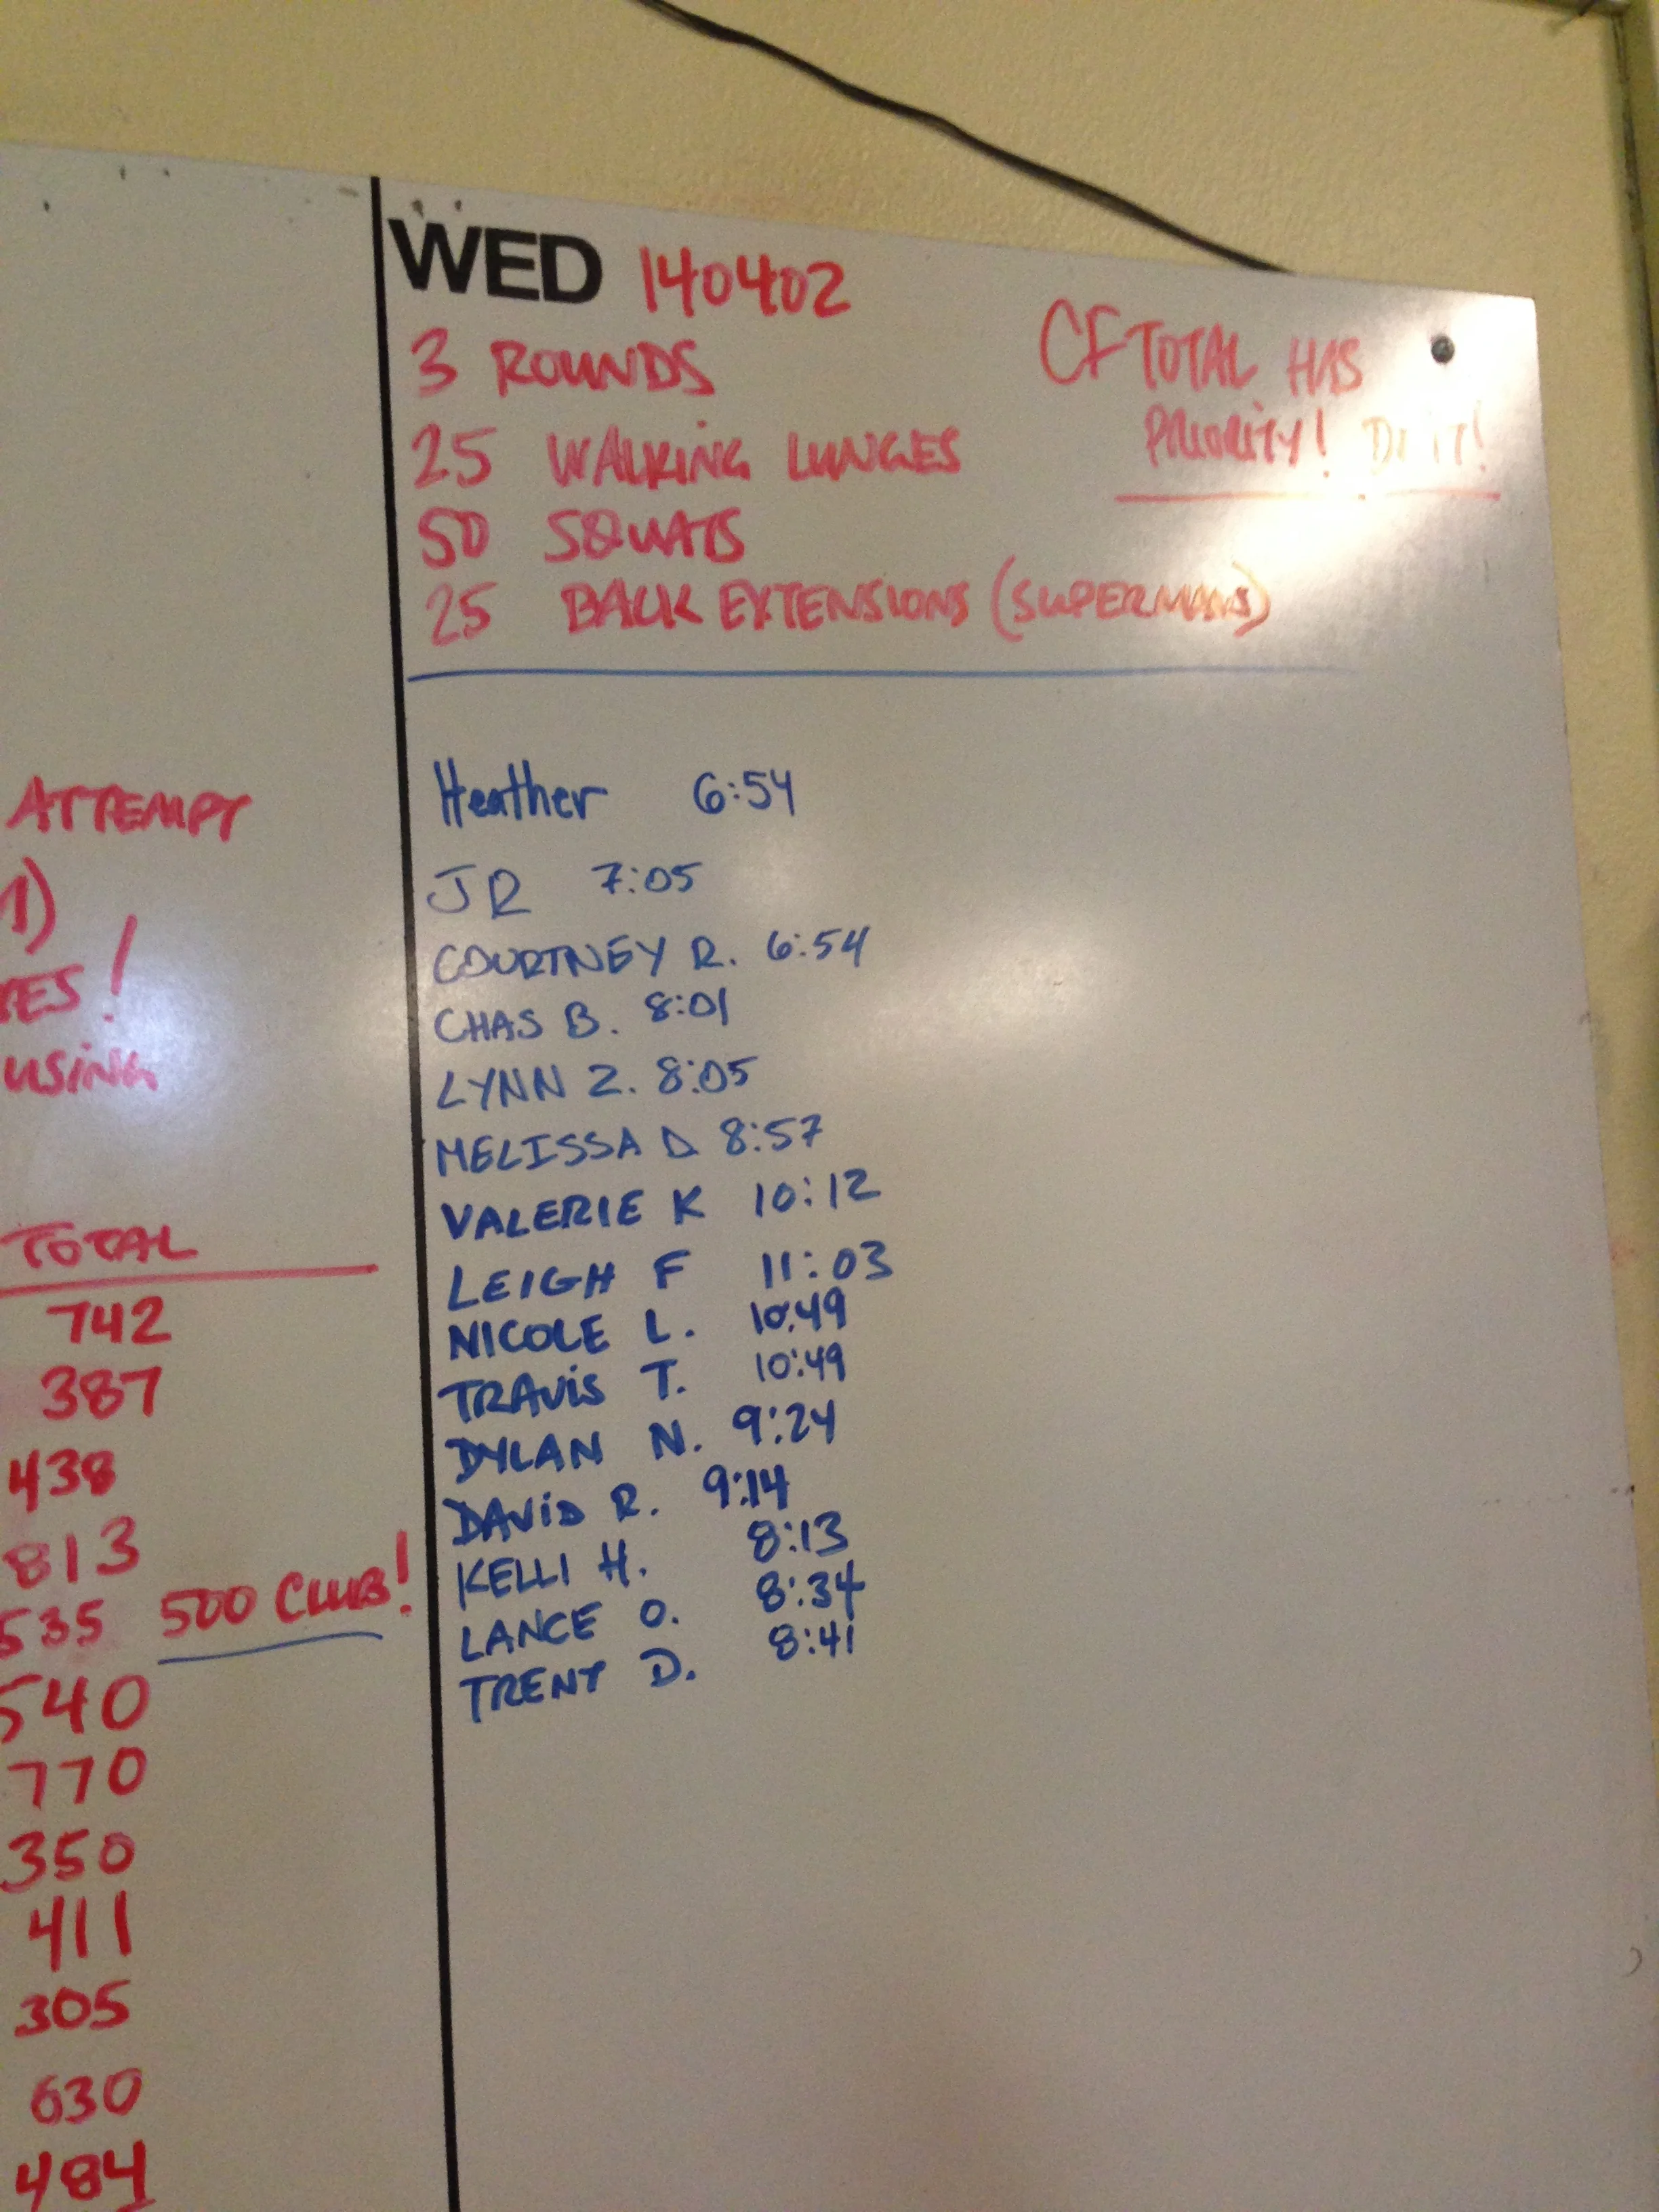 ATTEMPT
1)
!
USING
TOTAL
742
387
438
813
535 500 CLUB!
540
770
350
411
305
630
484
WED 140402
3 ROUNDS
25 WALKING LUNGES
50 SQUATS
25 BACK EXTENSIONS (SUPERMANS)
CF TOTAL HAS
PRIORITY! DO IT!
Heather 6:54
JR 7:05
COURTNEY R. 6:54
CHAS B. 8:01
LYNN Z. 8:05
MELISSA D 8:57
VALERIE K 10:12
LEIGH F 11:03
NICOLE L. 10:49
TRAVIS T. 10:49
DYLAN N. 9:24
DAVID R. 9:14
KELLI H. 8:13
LANCE O. 8:34
TRENT D. 8:41